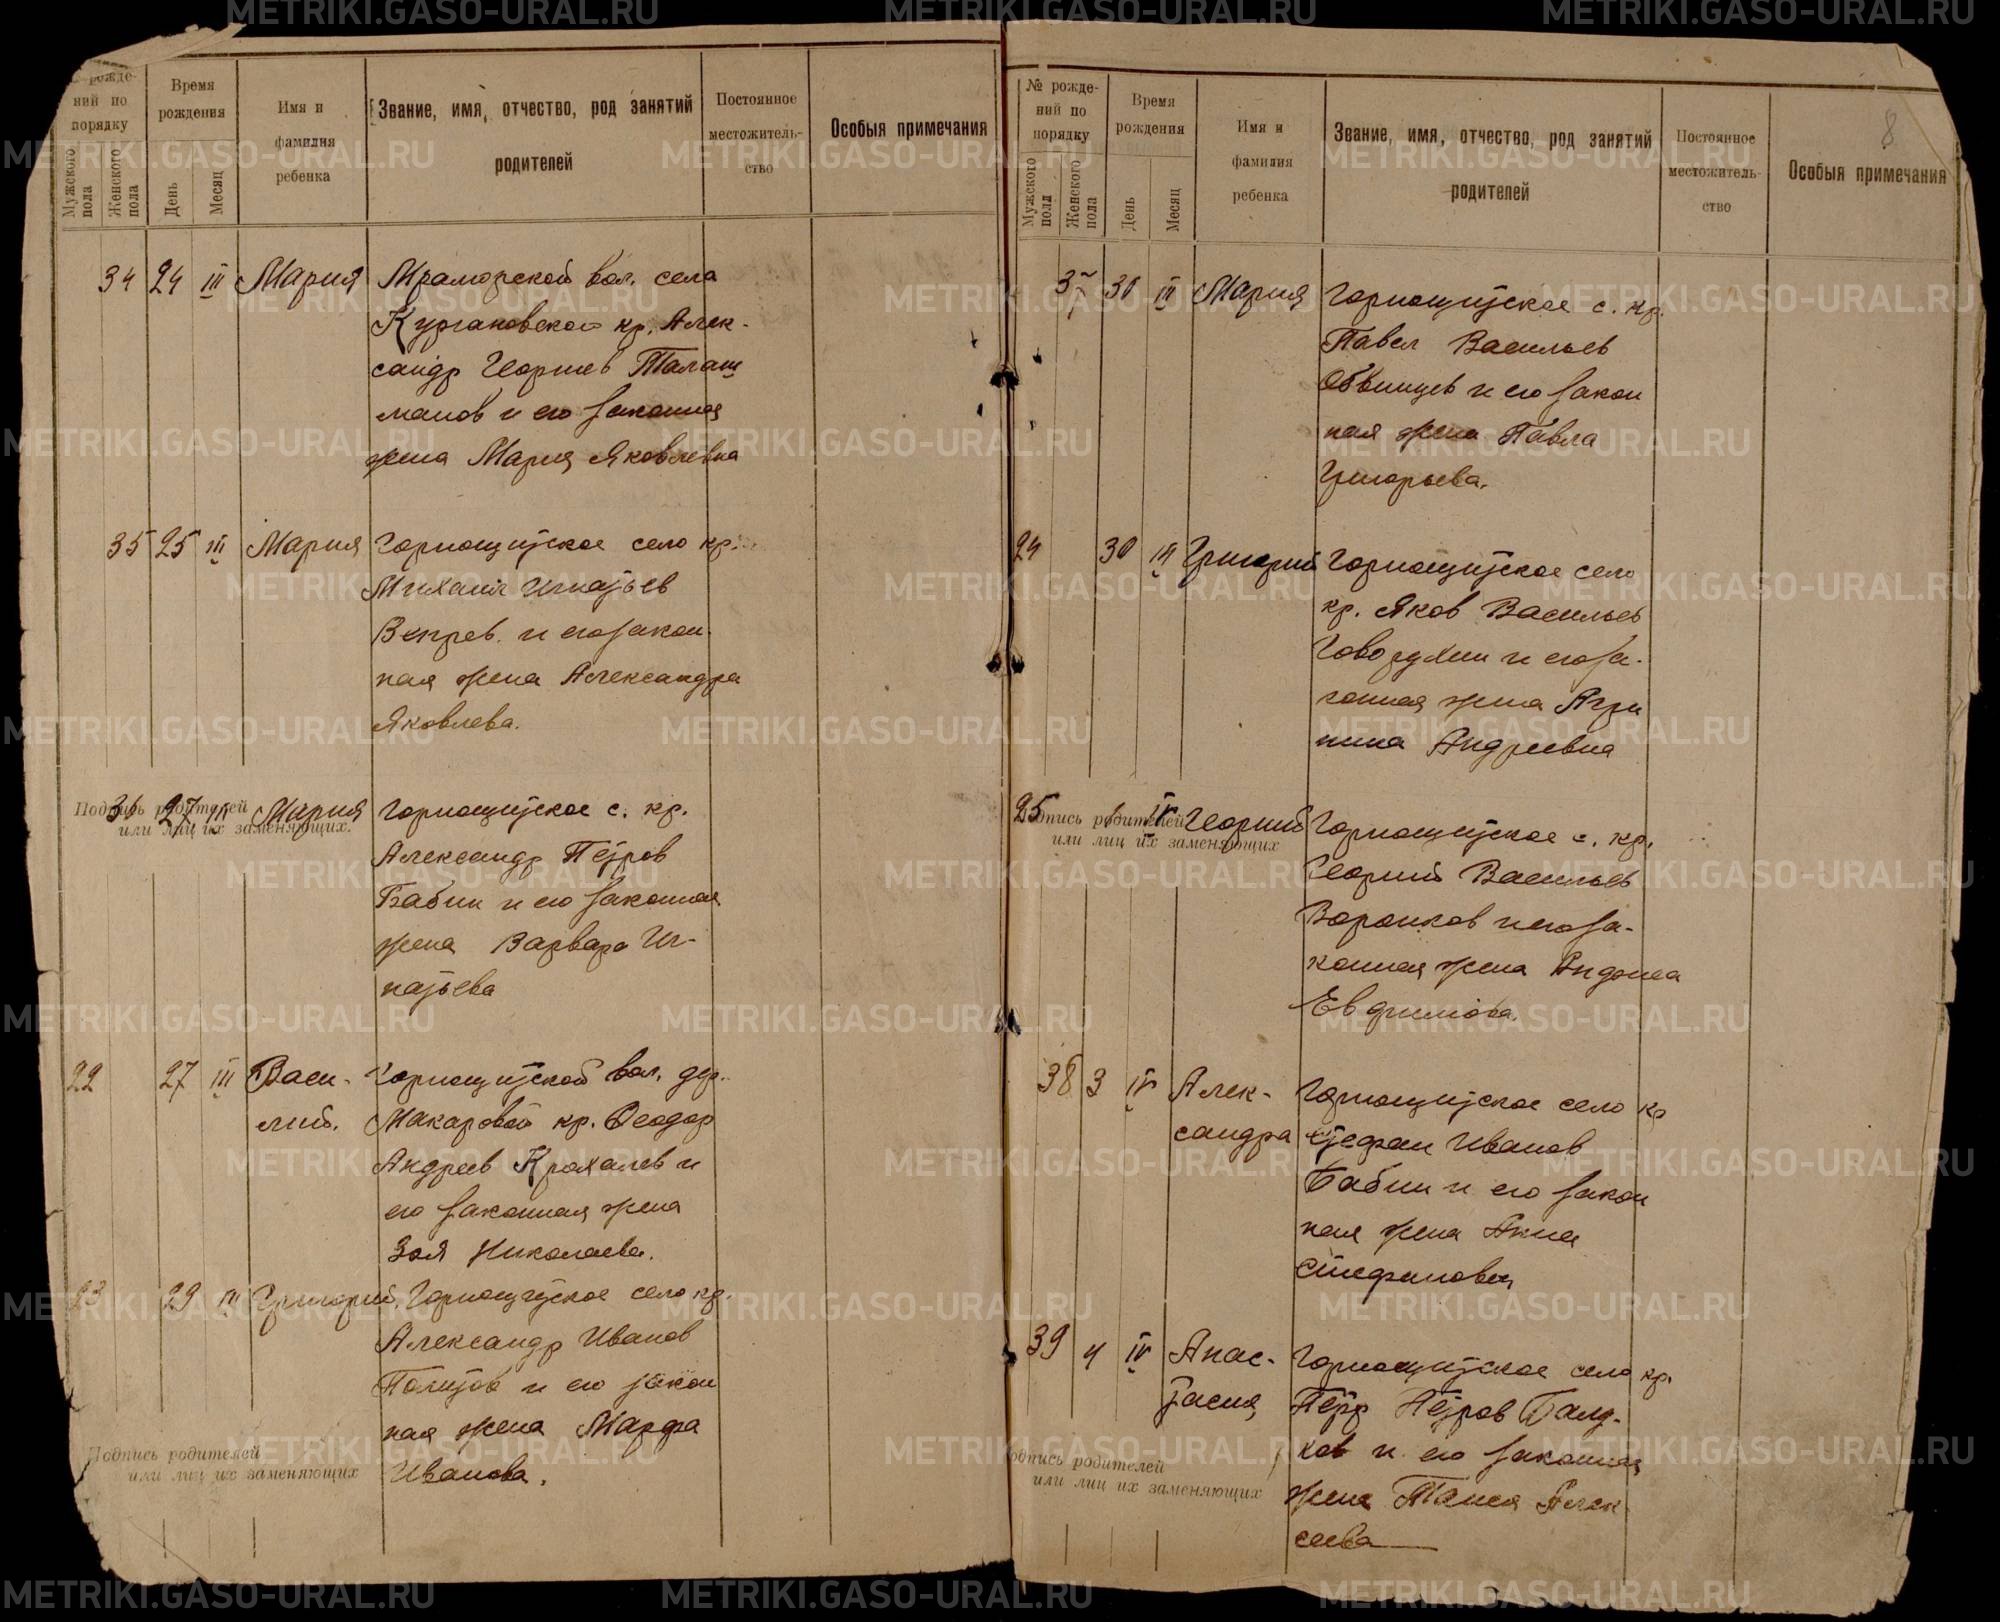 рожде-
ний по
порядку
Мужского пола
Женского пола
Время
рождения
День
Месяц
Имя и
фамилия
ребенка
Звание, имя, отчество, род занятий
родителей
Постоянное
местожитель-
ство
Особыя примечания
34 24 III Мария Мраморской вол. села
Кургановского кр. Алек-
сандр Георгиев Талаш
манов и его законная
жена Мария Яковлевна
35 25 III Мария Горнощитское село кр.
Михаил Игнатьев
Вепрев и его закон-
ная жена Александра
Яковлева.
Подпись родителей
или лиц их заменяющих.
36 27 III Мария Горнощитское с. кр.
Александр Петров
Бабин и его законная
жена Варвара Иг-
натьева
22 27 III Васи- Горнощитской вол. дер.
лий. Макаровой кр. Феодор
Андреев Крохалев и
его законная жена
Зоя Николаева.
23 29 III Григорий. Горнощитское село кр.
Александр Иванов
Политов и его закон
ная жена Марфа
Иванова.
Подпись родителей
или лиц их заменяющих
8
№ рожде-
ний по
порядку
Мужского пола
Женского пола
Время
рождения
День
Месяц
Имя и
фамилия
ребенка
Звание, имя, отчество, род занятий
родителей
Постоянное
местожитель-
ство
Особыя примечания
37 30 III Мария Горнощитское с. кр.
Павел Васильев
Обвинцев и его закон
ная жена Павла
Григорьева.
24 30 III Григорий Горнощитское село
кр. Яков Васильев
Говорухин и его за-
конная жена Агри
пина Андреевна
Подпись родителей
или лиц их заменяющих
25 1 IV Георгий Горнощитское с. кр.
Георгий Васильев
Воронков и его за-
конная жена
Евфимова.
38 3 IV Алек- Горнощитское село кр
сандра Стефан Иванов
Бабин и его закон
ная жена Анна
Стефановна
39 4 IV Анас- Горнощитское село кр.
тасия Петр Петров
ков и его законная
жена Таисия Алек
сеева
Подпись родителей
или лиц их заменяющих
METRIKI.GASO-URAL.RU